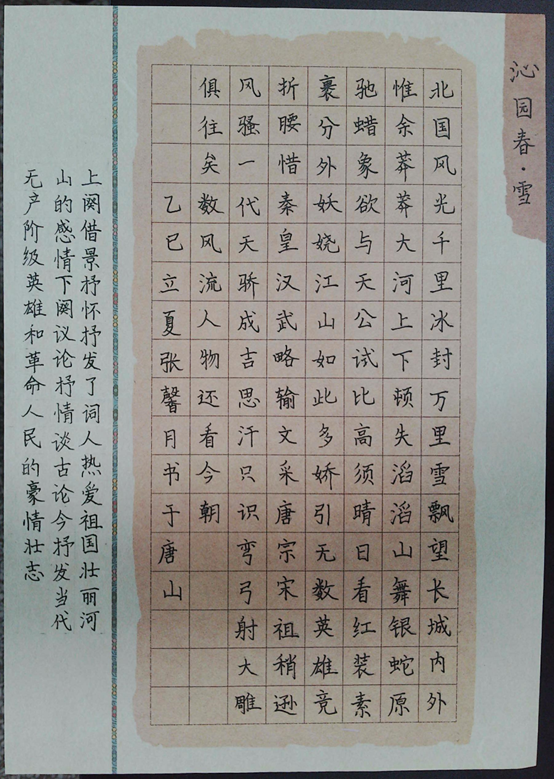 沁园春·雪
北国风光千里冰封万里雪飘望长城内外
惟余莽莽大河上下顿失滔滔山舞银蛇原
驰蜡象欲与天公试比高须晴日看红装素
裹分外妖娆江山如此多娇引无数英雄竞
折腰惜秦皇汉武略输文采唐宗宋祖稍逊
风骚一代天骄成吉思汗只识弯弓射大雕
俱往矣数风流人物还看今朝
乙巳立夏张馨月书于唐山
上阕借景抒怀抒发了词人热爱祖国壮丽河
山的感情下阕议论抒情谈古论今抒发当代
无产阶级英雄和革命人民的豪情壮志